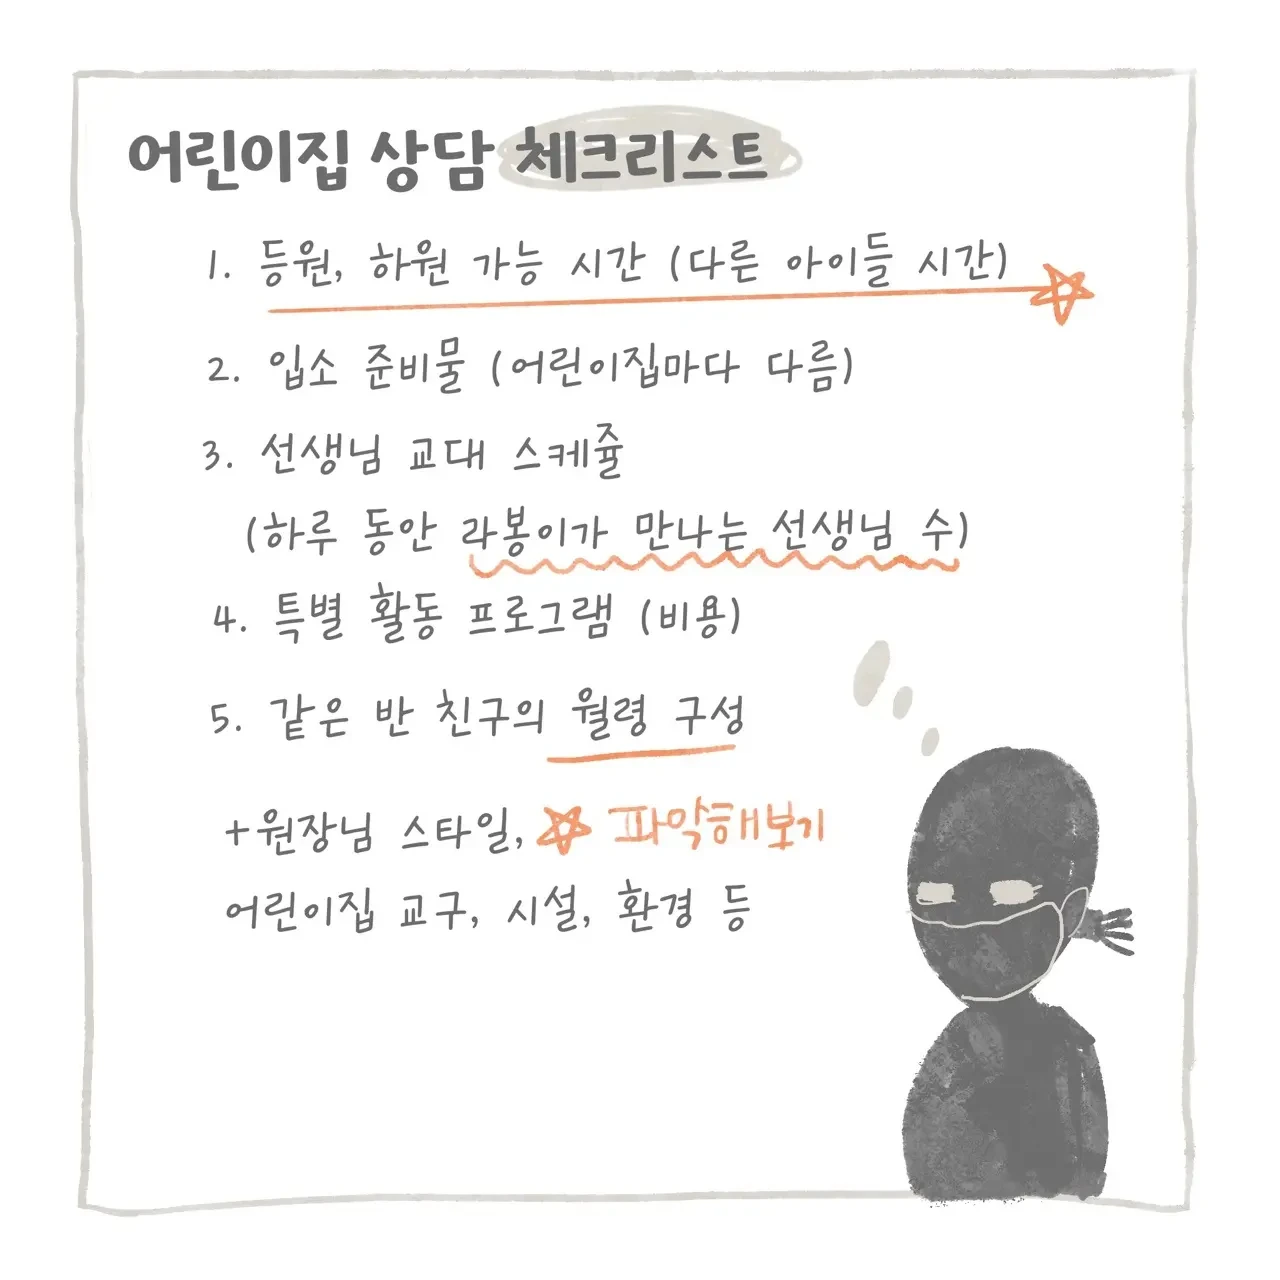 어린이집 상담 체크리스트
1. 등원, 하원 가능 시간 (다른 아이들 시간)
2. 입소 준비물 (어린이집마다 다름)
3. 선생님 교대 스케쥴
(하루 동안 라봉이가 만나는 선생님 수)
4. 특별 활동 프로그램 (비용)
5. 같은 반 친구의 월령 구성
+원장님 스타일, 파악해보기
어린이집 교구, 시설, 환경 등